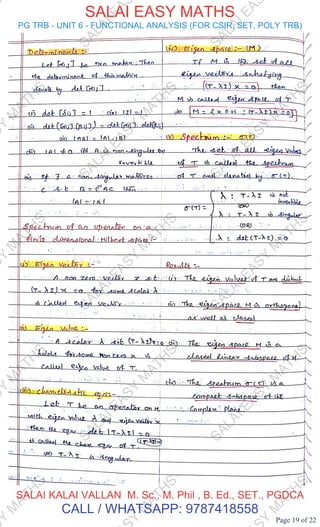 SALAI EASY MATHS
PG TRB - UNIT 6 - FUNCTIONAL ANALYSIS (FOR CSIR, SET, POLY TRB)
Determinants :-
Let [αij] be nxn matrix. Then
the determinant of this matrix
denote by det [αij].
(i) det [δij] = 1 (or) |I| = 1
(ii) det ([αij] [βij]) = det [αij]. det [βij]
(or) |AB| = |A|.|B|
(iii) |A| ≠ 0 iff A is non-singular
invertible
(iv) If ∃ a non-singular matrices
C s.t B = C⁻¹AC then
|B| = |A|
Spectrum of an operator on a
finite dimensional Hilbert space :-
(i) Eigen Vector :-
A non zero vector x s.t
(T-λI)x = 0 for some scalar λ
is called eigen vector.
(ii) Eigen Value :-
A scalar λ s.t (T-λI)x=0
holds for some non zero x is
called eigen value of T.
(iii) characteristic eqn :-
Let T be an operator on H
with eigen value λ and eigen vector x
then the eqn det |T-λI| = 0
is called the char eqn of T.
(or) T-λI is singular
(iv) Eigen space :- (M)
If M is the set of all
eigen vectors satisfying
(T-λI)x = 0 then
M is called eigen space of T
(or) M = {x ∈ H : (T-λI)x = 0}
(v) Spectrum :- σ(T)
The set of all eigen values
of T is called the spectrum
of T and denoted by σ(T).
σ(T) =
λ : T-λI is not
invertible
(OR)
λ : T-λI is singular
(OR)
λ : det (T-λI) = 0
Results :-
(i) The eigen values of T are distinct
(ii) The eigen space M is orthogonal
as well as closed
(iii) The eigen space M is a
closed linear subspace of H
(iv) The spectrum σ(T) is a
compact subspace of the
complex plane.
SALAI KALAI VALLAN M. Sc., M. Phil , B. Ed., SET., PGDCA
CALL / WHATSAPP: 9787418558
Page 19 of 22